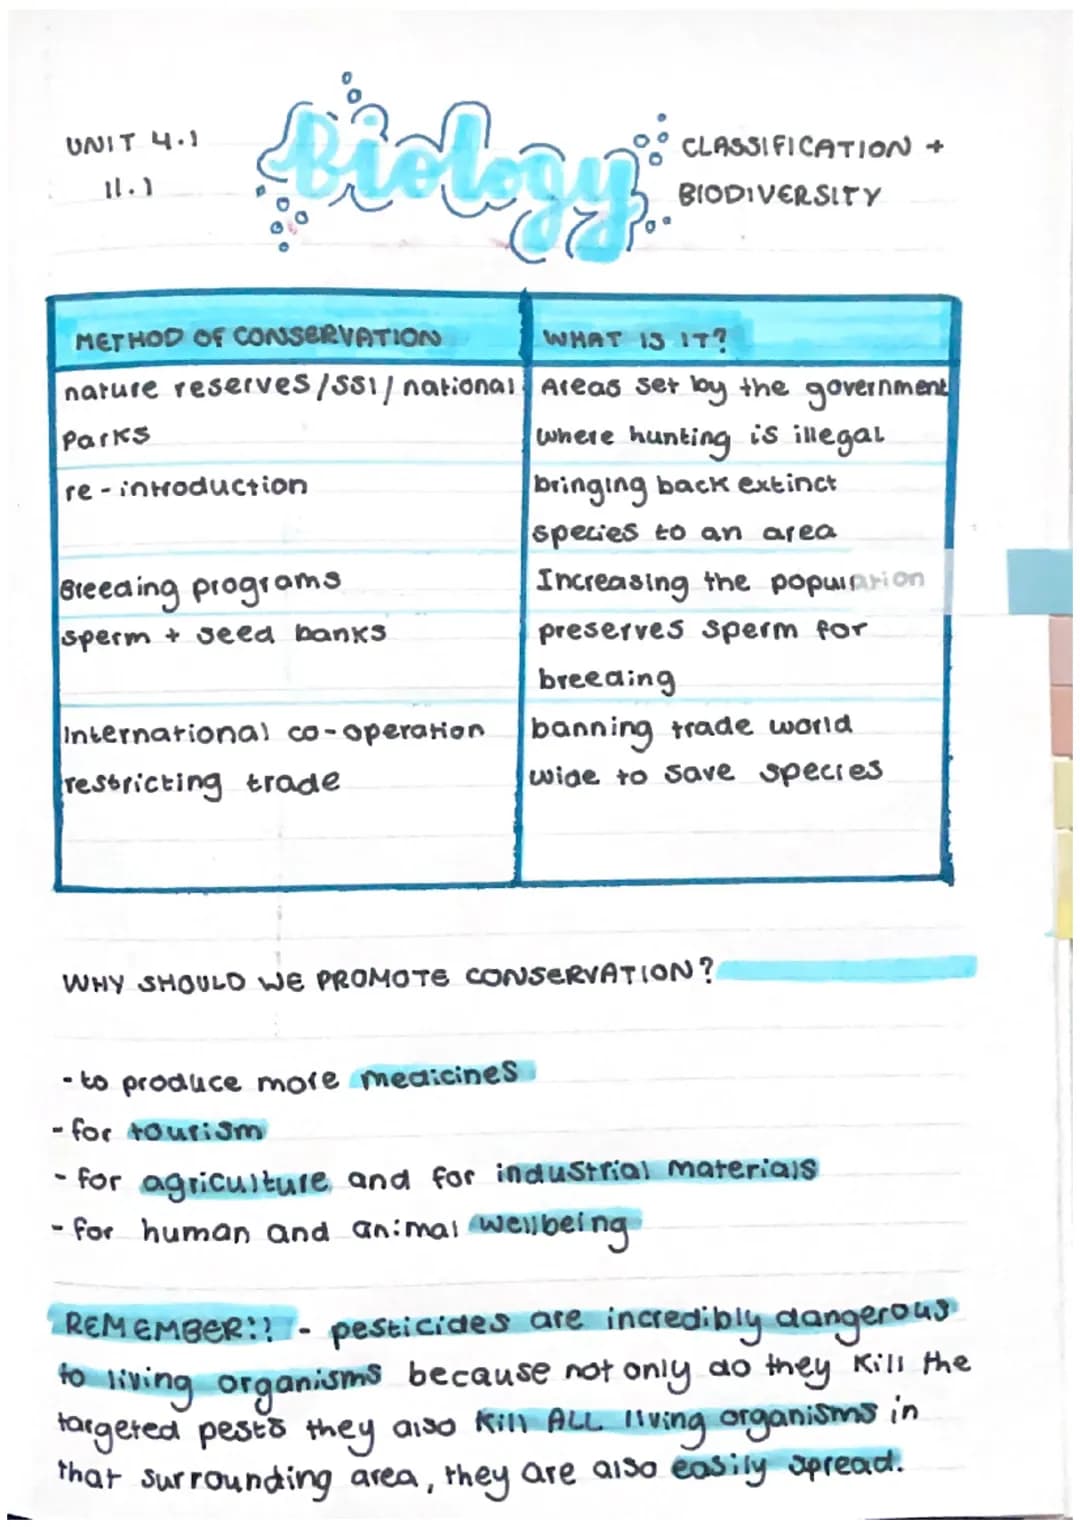 UNIT 4.1
11.1
Biology
CLASSIFICATION +
BIODIVERSITY
METHOD OF CONSERVATION
WHAT IS IT?
nature reserves/SSI/national
Parks
Areas set by the government
where hunting is illegal
re-introduction
bringing back extinct
species to an area
Breeding programs
Increasing the population
sperm + seed banks
preserves sperm for
breeding
International co-operation
restricting trade
banning trade world
wide to save species
WHY SHOULD WE PROMOTE CONSERVATION?
- to produce more medicines
- for tourism
- for agriculture and for industrial materials
- for human and animal wellbeing
REMEMBER!! - pesticides are incredibly dangerous
to living organisms because not only do they kill the
targeted pests they also kill ALL living organisms in
that surrounding area, they are also easily spread.